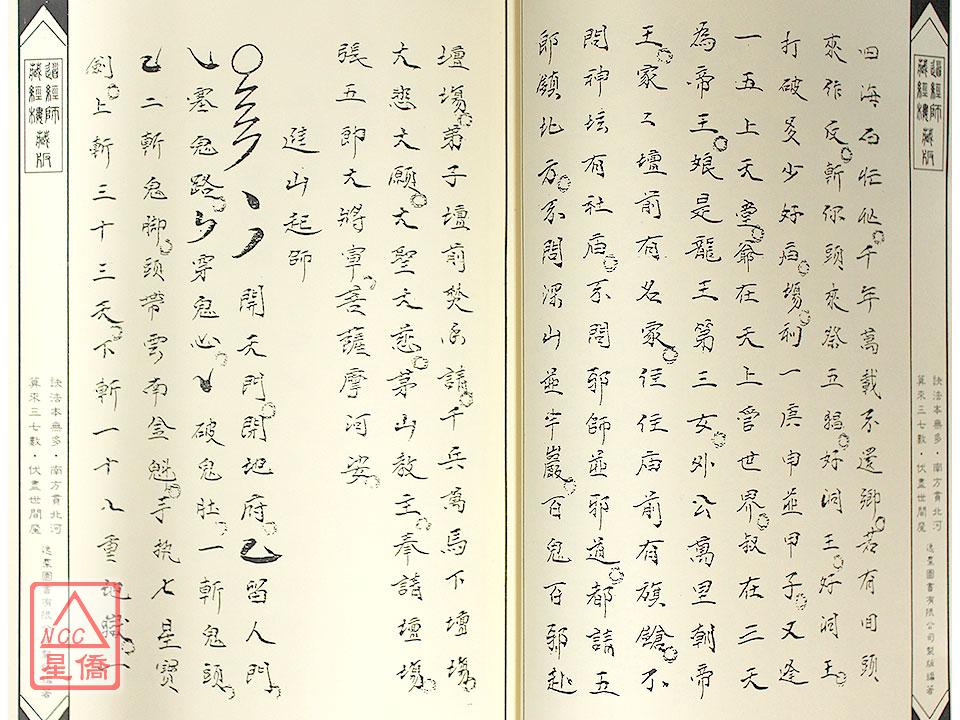 道經師藏經樓藏版
訣法本無多・南方貫北河
算來三七數・伏盡世間魔
逸羣圖書有限公司製版編著
四海百忙他千年萬載不還鄉若有回頭
來作反斬你頭來祭五猖好洞王好洞王
打破多少好庙場利一庚申並甲子又逢
一五上天堂爺在天上管世界叔在三天
為帝王娘是龍王第三女外公萬里朝帝
王家之壇前有名家住住庙前有旗鎗不
問神坛有社庙不問邪師並邪道都請五
郎領北方不問深山並半巖百鬼百邪赴
壇場弟子壇前焚香請千兵萬馬下壇場
大悲大願大聖大慈茅山教主奉請壇場
張五郎大將軍菩薩摩河娑
逵山起師
開天門開地府留人門
塞鬼路穿鬼心破鬼肚一斬鬼頭
二斬鬼脚頭帶雲南金魁手执七星寶
劍上斬三十三天下斬一十八重地獄一
道經師藏經樓藏版
訣法本無多・南方貫北河
算來三七數・伏盡世間魔
逸羣圖書有限公司製版編著
NCC
星僑